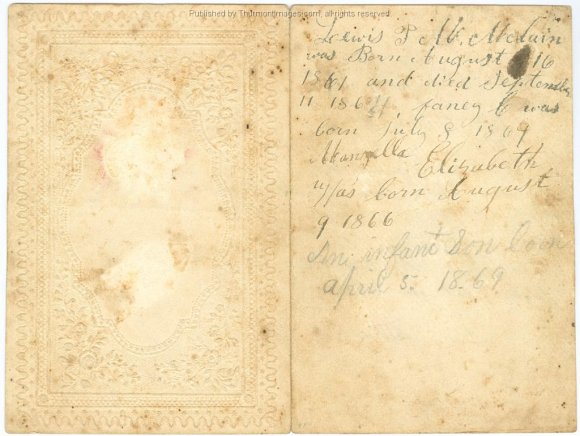 Published by Thurmontimages.com, all rights reserved
Lewis P Mc Clain
was Born August 16
1861 and died September
11 1864 fancy C was
born July 8 1869
Manzella Elizabeth
Was born August
9 1866
An infant Son born
April 5. 1869